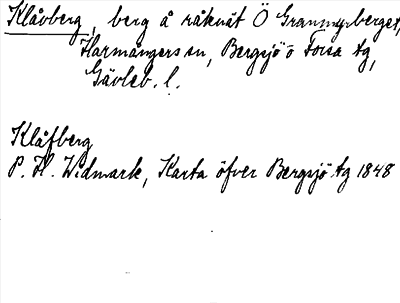 Klåvberg, berg å råknät Ö Grannäsberget,
Harmångers sn, Bergsjö o Forsa tg,
Gävleb. l.
Klåfberg
P. H. Widmark, Karta öfver Bergsjö tg 1848